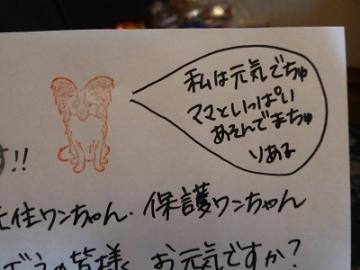 私は元気でちゅ
ママといっぱい
あそんでまちゅ
りある
す!!
住ワンちゃん.保護ワンちゃん
の皆様、お元気ですか?